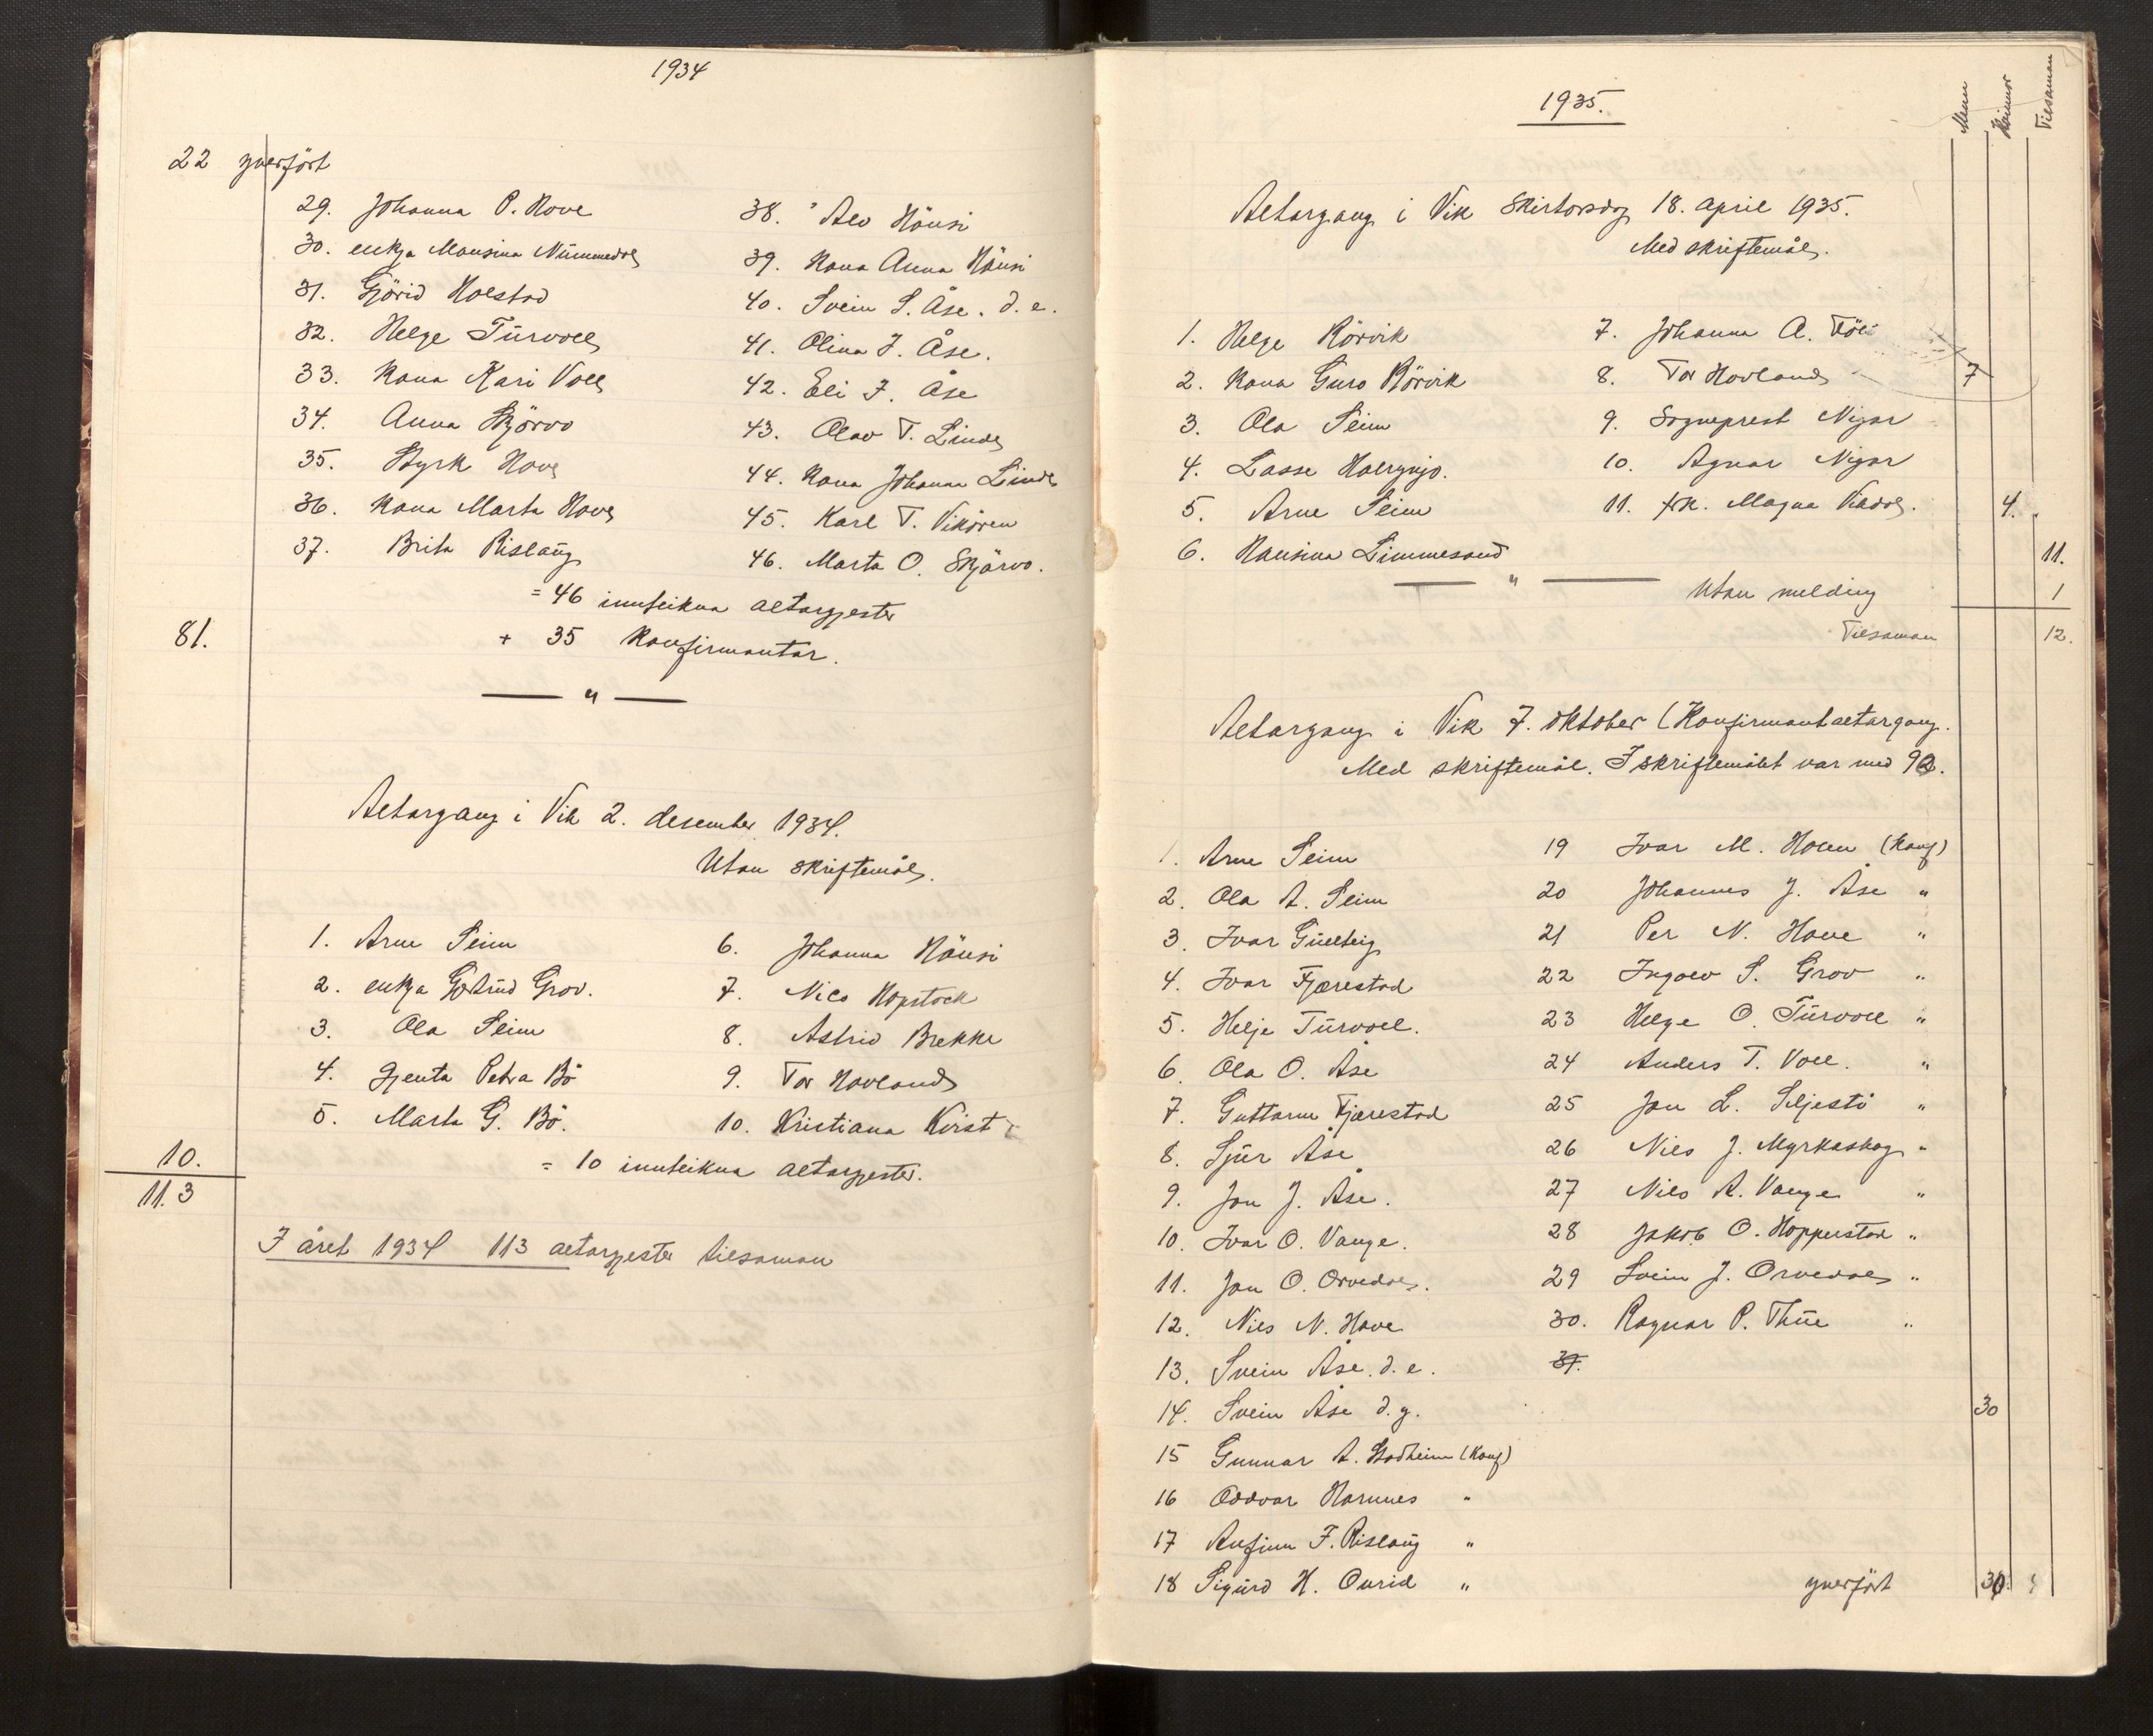 1934
22 yverfört
29. Johanna P. Hove
30. enkja Mansina Nümmedal
31. Gjörid Holstad
32. Helge Türvoll
33. Kona Kari Voll
34. Anna Skjörvo
35. Styrk Hove
36. Kona Marta Hove
37. Brita Risløüg
38. Alv Hönsi
39. Kona Anna Hönsi
40. Svein S. Åse. d. e.
41. Olina J. Åse.
42. Eli J. Åse
43. Olav T. Linde
44. Kona Johanna Linde
45. Karl T. Vikören
46. Marta O. Skjörvo.
= 46 innteikna altargjester
81. + 35 Konfirmantar.
— " —
Altargang i Vik 2. desember 1934.
Utan skriftemål.
1. Arne Seim
2. enkja Gjertrud Grov.
3. Ola Seim
4. gjenta Petra Bö
5. Marta G. Bö.
6. Johanna Hönsi
7. Nils Hopstock
8. Astrid Brekke
9. Tor Hovland
10. Kristiana Kvist
10. = 10 innteikna altargjester.
11.3
I året 1934 113 altargjester tilsaman
1935.
Menn
Kvinnor
Tilsaman
Altargang i Vik Skirtorsdag 18. april 1935.
Med skriftemål.
1. Helge Rörvik
2. Kona Guro Rörvik
3. Ola Seim
4. Lasse Halrynjo.
5. Arne Seim
6. Hansina Limmesand
7. Johanna A. Föli
8. Tor Hovland 7
9. Sogneprest Nigar
10. Agnar Nigar
11. frk. Magna Vikdal. 4.
11.
— " — Utan melding 1
Tilsaman 12.
Altargang i Vik 7. oktober (Konfirmantaltargang.
Med skriftemål. I skriftemålet var med 92.
1. Arne Seim
2. Ola A. Seim
3. Ivar Güllteig
4. Ivar Fjærestad
5. Helje Türvoll.
6. Ola O. Åse
7. Guttorm Fjærestad
8. Sjür Åse
9. Jon J. Åse.
10. Ivar O. Vange.
11. Jon O. Orvedal.
12. Nils N. Hove
13. Svein Åse. d. e.
14. Svein Åse d. y.
15 Gunnar A. Stadheim (Konf)
16 Oddvar Hamnes "
17 Anfinn F. Risløüg "
18 Sigürd H. Ovrid "
19 Ivar M. Holen (Konf)
20 Johannes J. Åse "
21 Per N. Hove "
22 Ingolv S. Grov "
23 Helge O. Türvoll "
24 Anders T. Voll. "
25 Jon L. Seljesti "
26 Nils J. Myrkaskog "
27 Nils A. Vange "
28 Jakob O. Hopperstad "
29 Svein J. Orvedal "
30. Ragnar P. Thüe "
31.
30
yverfört 30